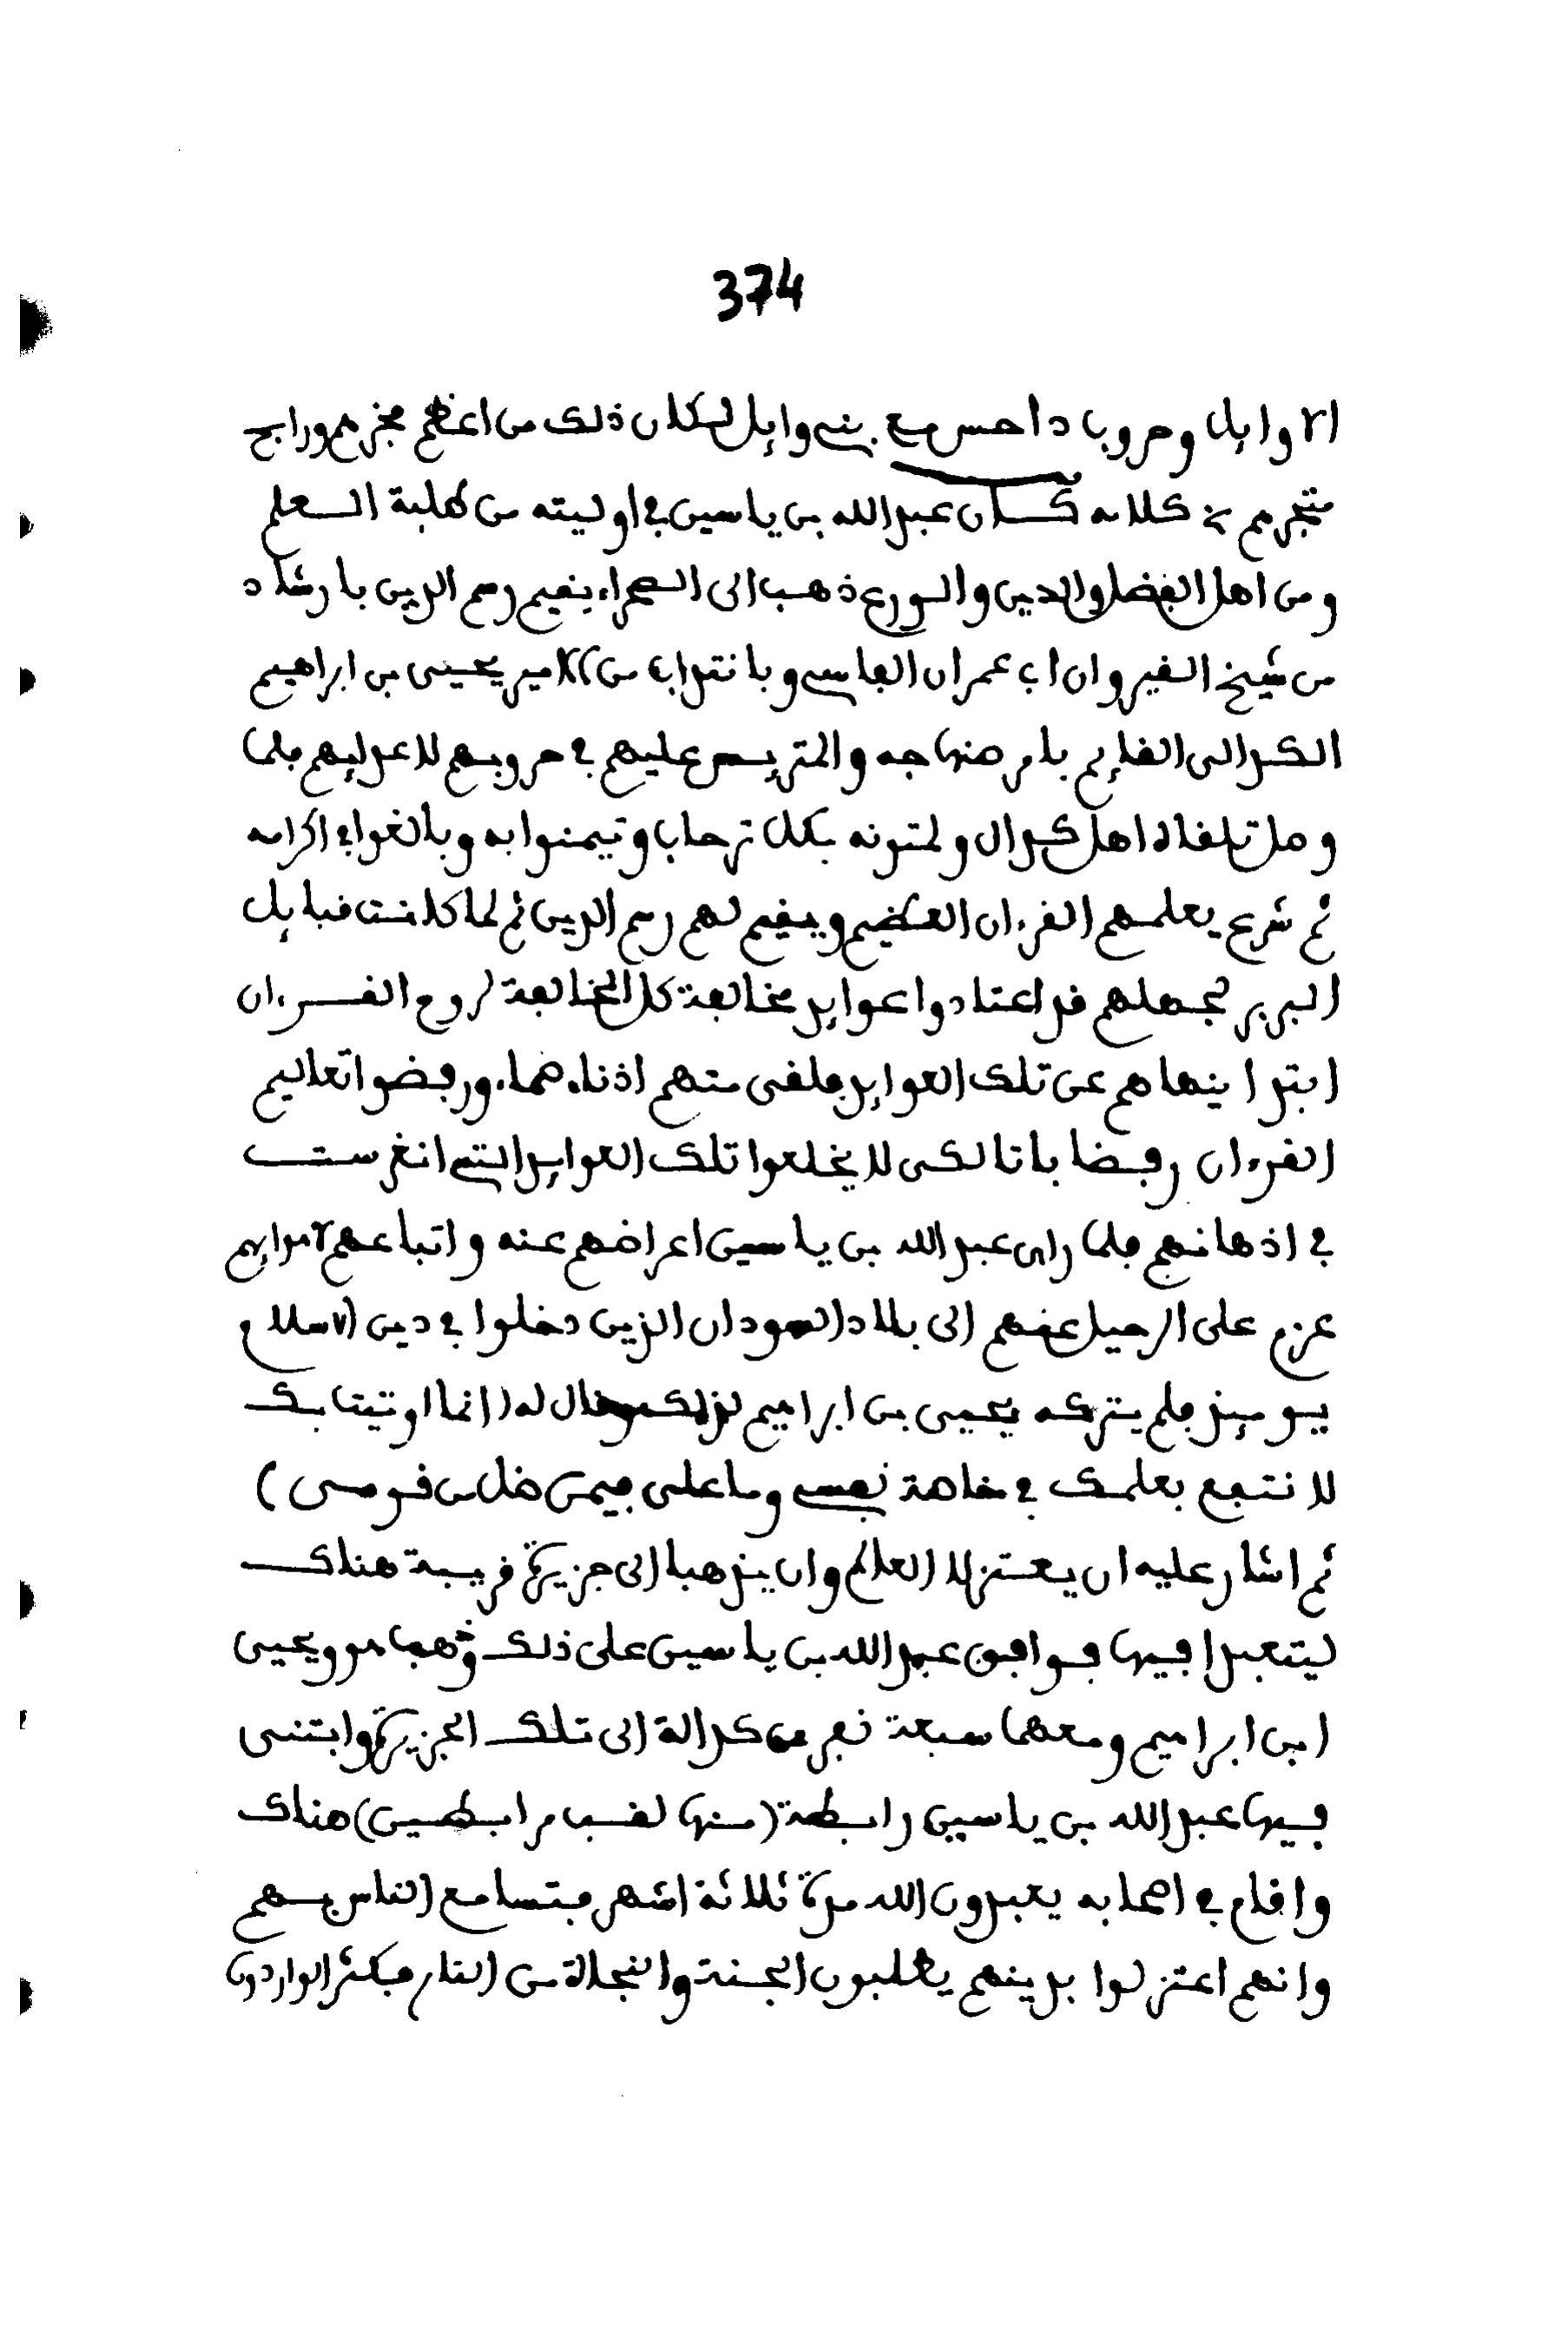 374
الاوايل وحروب داحس مع بني وايل لكان ذلك من اعظم مجزهم ورابح
متجرهم خ كلامه كان عبد الله بن ياسين في اوليته من طلبة العلم
ومن اهل الفضل والدين والورع ذهب الى الصحراء يقيم رسم الدين بارشاد
من شيخ القيروان ابي عمران الفاسي وبانتداب من الامير يحيى بن ابراهيم
الكدالى القايم بامر صنهاجه والمتريس عليهم في حروبهم لاعدايهم فلما
وصل تلقاه اهل كدال ولمتونه بكل ترحاب وتيمنوا به وبالغوا في اكرامه
ثم شرع يعلمهم القرءان العظيم ويقيم لهم رسم الدين ثم لما كانت قبايل
البربر لجهلهم قد اعتادوا عوايد مخالفة كل المخالفة لروح القرءان
ابتدا ينهاهم عن تلك العوايد فلقى منهم اذناء صماء ورفضوا تعاليم
القرءان رفضا باتا لكى لا يخلعوا تلك العوايد التي انغرست
في اذهانهم فلما راى عبد الله بن ياسين اعراضهم عنه واتباعهم لاهوايهم
عزم على الرحيل عنهم الى بلاد السودان الذين دخلوا في دين الاسلام
يوميذ فلم يتركه يحيى بن ابراهيم لذلك وقال له (انما اوتيت بك
لانتفع بعلمك في خاصة نفسي وما على فيمن ضل من قومى)
ثم اشار عليه ان يعتزلا العالم وان يذهبا الى جزيرة قريبة هناك
ليتعبدا فيها فوافق عبد الله بن ياسين على ذلك وذهب هو ويحيى
ابن ابراهيم ومعهما سبعة نفر من كدالة الى تلك الجزيرة وابتنى
فيها عبد الله بن ياسين رابطة (منها لقب مرابطين) هناك
واقام في اصحابه يعبدون الله مدة ثلاثة اشهر فتسامع الناس بهم
وانهم اعتزلوا بدينهم يطلبون الجنة والنجاة من النار فكثر الواردون